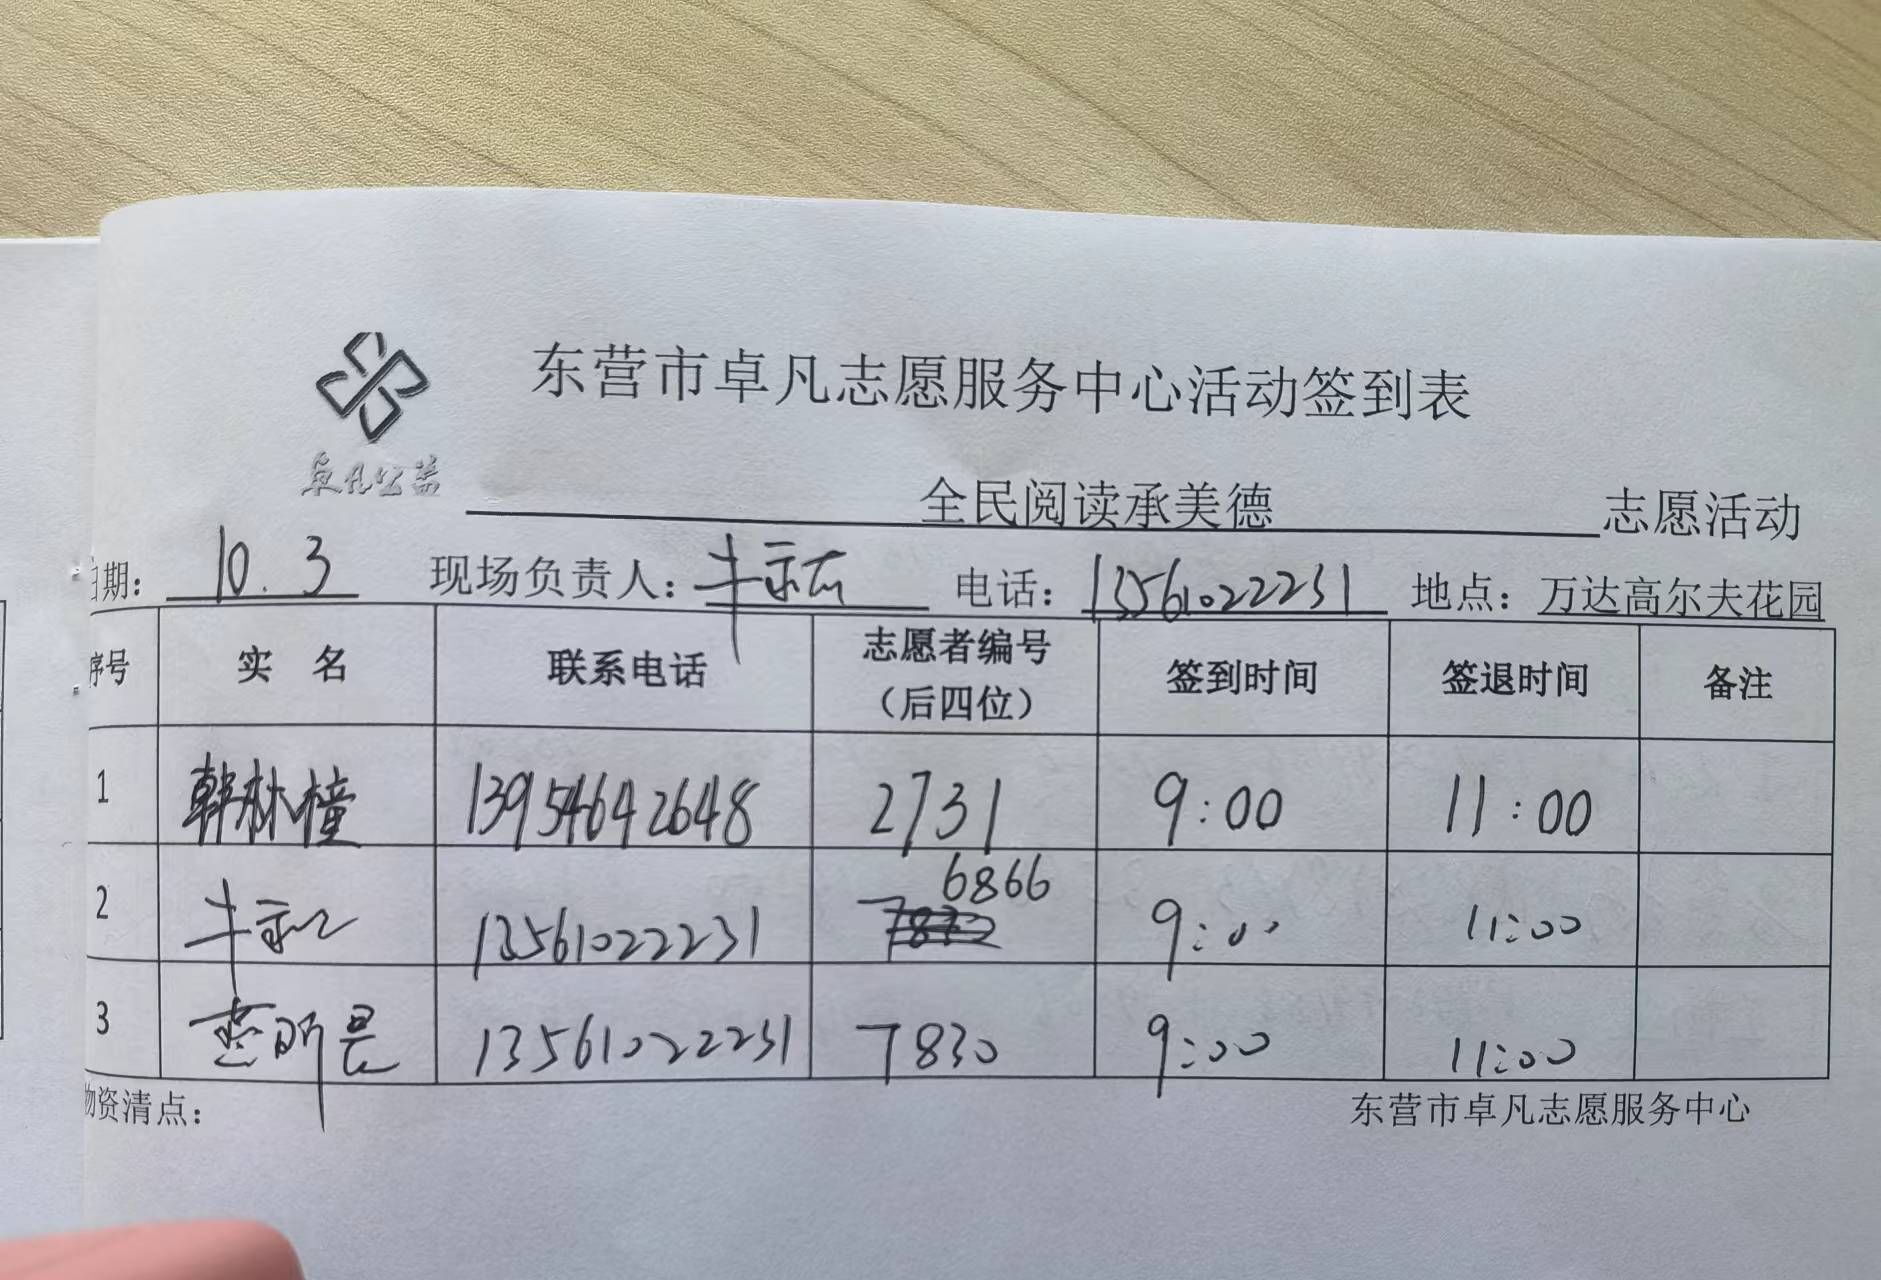 东营市卓凡志愿服务中心活动签到表
卓凡公益
全民阅读承美德 志愿活动
日期: 10.3 现场负责人: 牛 电话: 13561022231 地点: 万达高尔夫花园
序号 实 名 联系电话 志愿者编号 签到时间 签退时间 备注
(后四位)
1 韩林橦 13954642648 2731 9:00 11:00
6866
2 牛 13561022231 9:00 11:00
3 昕 13561022231 7830 9:00 11:00
物资清点: 东营市卓凡志愿服务中心